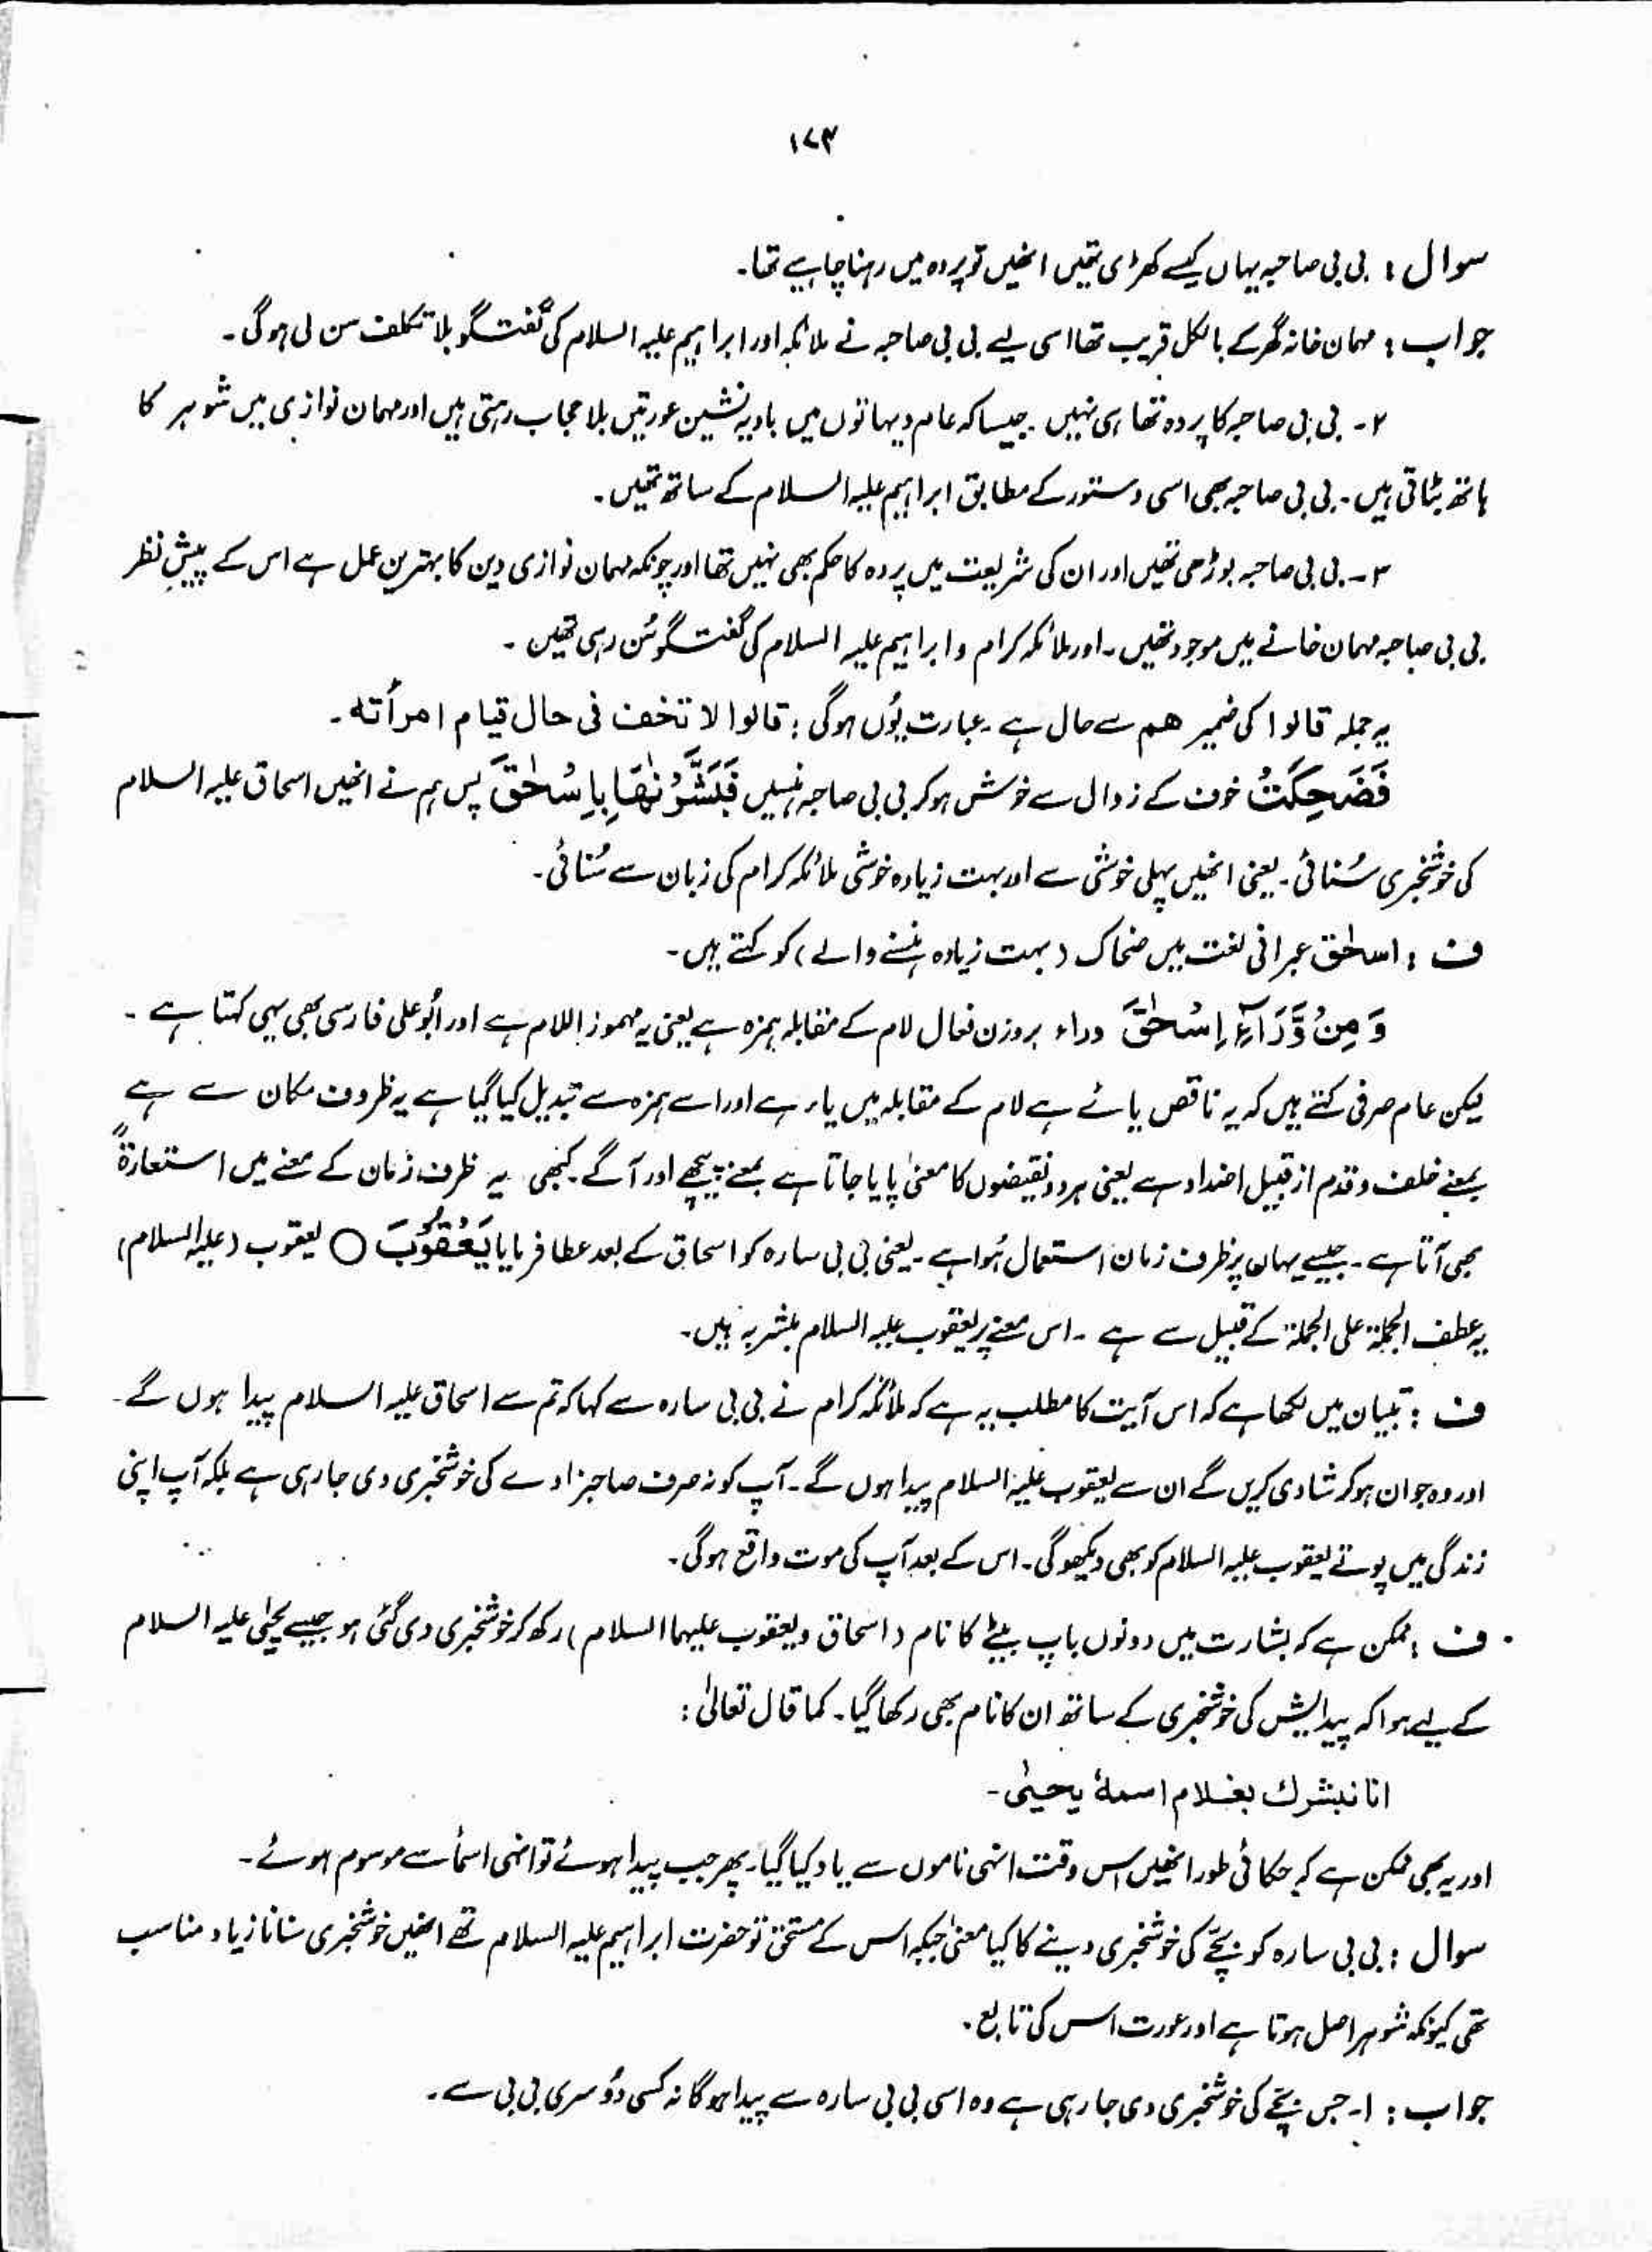 ۱۷۴
سوال : بی بی صاحبہ یہاں کیسے کھڑی تھیں انھیں تو پردہ میں رہنا چاہیے تھا۔
جواب : مہمان خانہ گھر کے بالکل قریب تھا اسی لیے بی بی صاحبہ نے ملائکہ اور ابراہیم علیہ السلام کی گفتگو بلا تکلف سن لی ہوگی۔
۲۔ بی بی صاحبہ کا پردہ تھا ہی نہیں۔ جیسا کہ عام دیہاتوں میں بادیہ نشین عورتیں بلا حجاب رہتی ہیں اور مہمان نوازی میں شوہر کا
ہاتھ بٹاتی ہیں۔ بی بی صاحبہ بھی اسی دستور کے مطابق ابراہیم علیہ السلام کے ساتھ تھیں۔
۳۔ بی بی صاحبہ بوڑھی تھیں اور ان کی شریعت میں پردہ کا حکم بھی نہیں تھا اور چونکہ مہمان نوازی دین کا بہترین عمل ہے اس کے پیشِ نظر
بی بی صاحبہ مہمان خانے میں موجود تھیں۔ اور ملائکہ کرام و ابراہیم علیہ السلام کی گفتگو سُن رہی تھیں۔
یہ جملہ قالوا کی ضمیر ھم سے حال ہے۔ عبارت یُوں ہوگی : قالوا لا تخف فی حال قیام امرأته۔
فَضَحِكَتْ خوف کے زوال سے خوش ہو کر بی بی صاحبہ ہنسیں فَبَشَّرْنٰهَا بِاِسْحٰقَ پس ہم نے انھیں اسحاق علیہ السلام
کی خوشخبری سُنائی۔ یعنی انھیں پہلی خوشی سے اور بہت زیادہ خوشی ملائکہ کرام کی زبان سے سُنائی۔
ف : اسحٰق عبرانی لغت میں ضحاک (بہت زیادہ ہنسنے والے) کو کہتے ہیں۔
وَ مِنْ وَّرَآءِ اِسْحٰقَ وراء بروزن فعال لام کے مقابلہ ہمزہ ہے یعنی یہ مہموز اللام ہے اور ابُو علی فارسی بھی یہی کہتا ہے۔
لیکن عام صرفی کہتے ہیں کہ یہ ناقص یائے ہے لام کے مقابلہ میں یاء ہے اور اسے ہمزہ سے تبدیل کیا گیا ہے یہ ظروف مکان سے ہے
بمعنے خلف و قدم از قبیل اضداد ہے یعنی ہر دو نقیضوں کا معنیٰ پایا جاتا ہے بمعنے پیچھے اور آگے۔ کبھی یہ ظرف زمان کے معنے میں استعارۃً
بھی آتا ہے۔ جیسے یہاں پر ظرف زمان استعمال ہُوا ہے۔ یعنی بی بی سارہ کو اسحاق کے بعد عطا فرمایا یَعْقُوْبَ ○ یعقوب (علیہ السلام)
یہ عطف الجملۃ علی الجملۃ کے قبیل سے ہے۔ اس معنے پر یعقوب علیہ السلام مبشر بہ ہیں۔
ف : تبیان میں لکھا ہے کہ اس آیت کا مطلب یہ ہے کہ ملائکہ کرام نے بی بی سارہ سے کہا کہ تم سے اسحاق علیہ السلام پیدا ہوں گے۔
اور وہ جوان ہو کر شادی کریں گے ان سے یعقوب علیہ السلام پیدا ہوں گے۔ آپ کو نہ صرف صاحبزادے کی خوشخبری دی جا رہی ہے بلکہ آپ اپنی
زندگی میں پوتے یعقوب علیہ السلام کو بھی دیکھو گی۔ اس کے بعد آپ کی موت واقع ہوگی۔
ف : ممکن ہے کہ بشارت میں دونوں باپ بیٹے کا نام (اسحاق و یعقوب علیہما السلام) رکھ کر خوشخبری دی گئی ہو جیسے یحییٰ علیہ السلام
کے لیے ہوا کہ پیدائش کی خوشخبری کے ساتھ ان کا نام بھی رکھا گیا۔ کما قال تعالیٰ :
انا نبشرك بغلام اسمهٗ یحیىٰ۔
اور یہ بھی ممکن ہے کہ حکائی طور انھیں اس وقت انہی ناموں سے یاد کیا گیا۔ پھر جب پیدا ہوئے تو انہی اسمأ سے موسوم ہوئے۔
سوال : بی بی سارہ کو بچّے کی خوشخبری دینے کا کیا معنیٰ جبکہ اس کے مستحق تو حضرت ابراہیم علیہ السلام تھے انھیں خوشخبری سنانا زیادہ مناسب
تھی کیونکہ شوہر اصل ہوتا ہے اور عورت اس کی تابع۔
جواب : ۱۔ جس بچّے کی خوشخبری دی جا رہی ہے وہ اسی بی بی سارہ سے پیدا ہوگا نہ کسی دُوسری بی بی سے۔